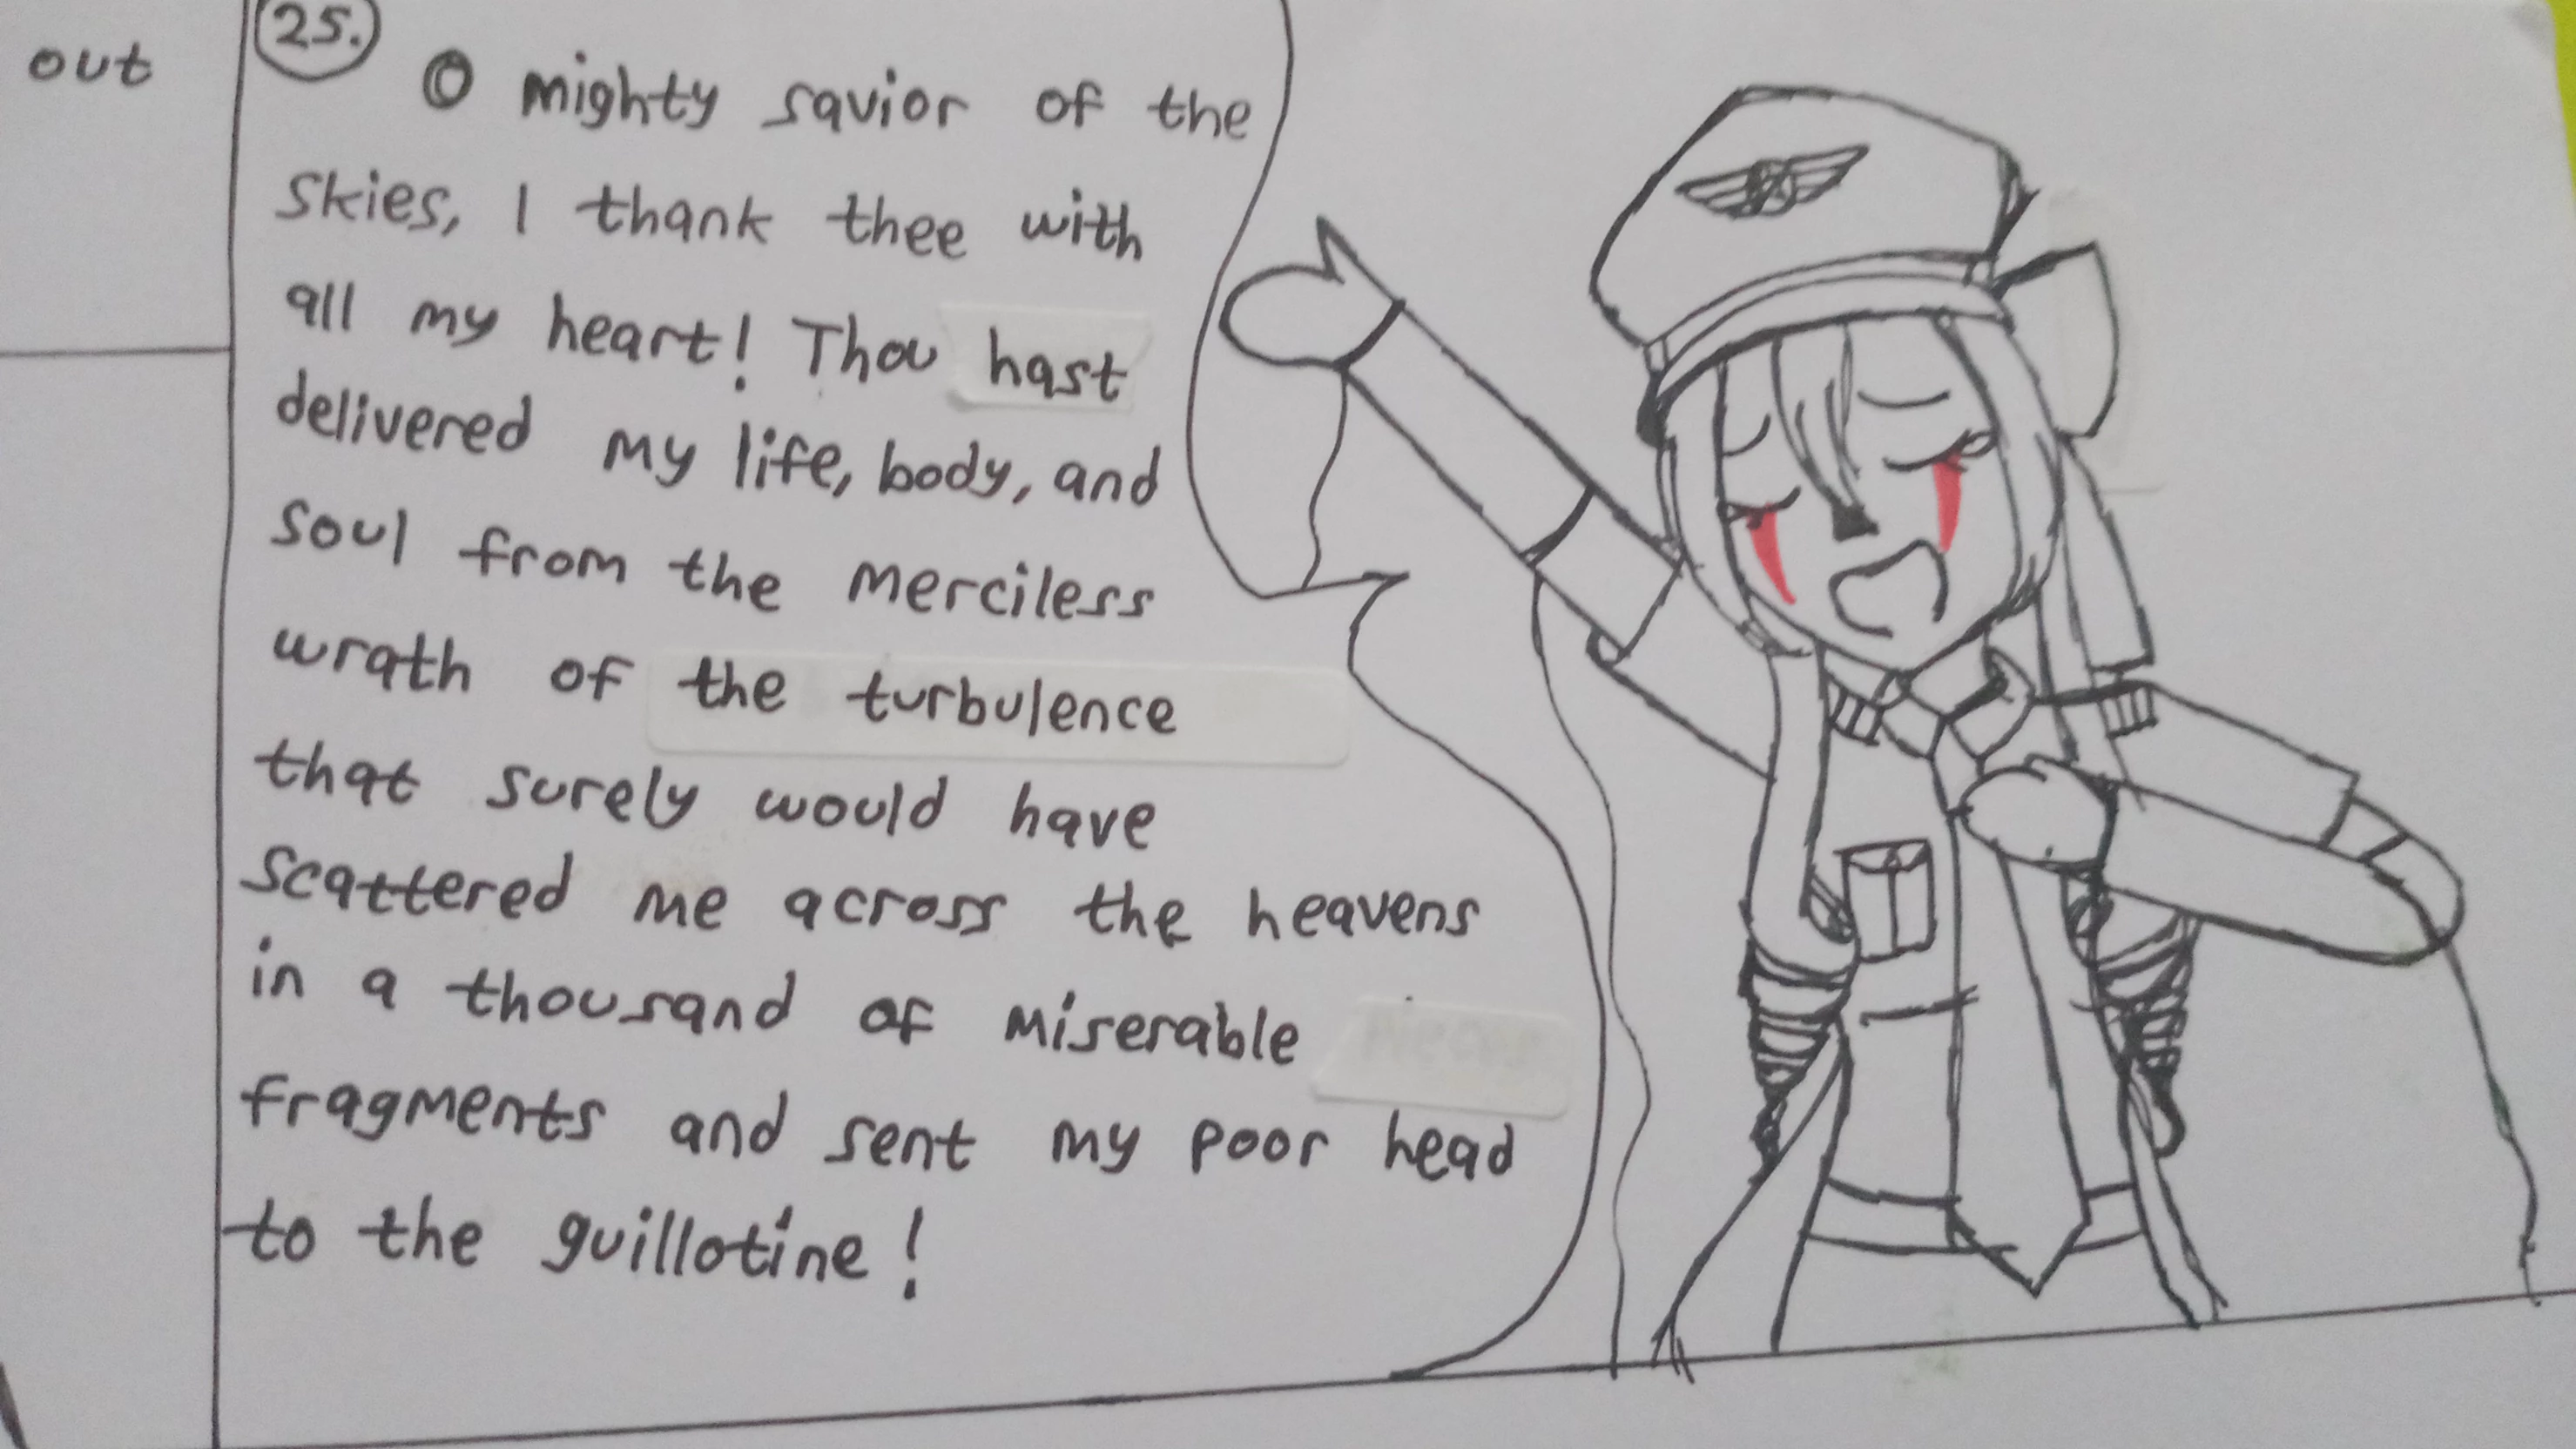 out
25.
O mighty savior of the
skies, I thank thee with
all my heart! Thou hast
delivered my life, body, and
soul from the merciless
wrath of the turbulence
that surely would have
scattered me across the heavens
in a thousand of miserable
fragments and sent my poor head
to the guillotine!